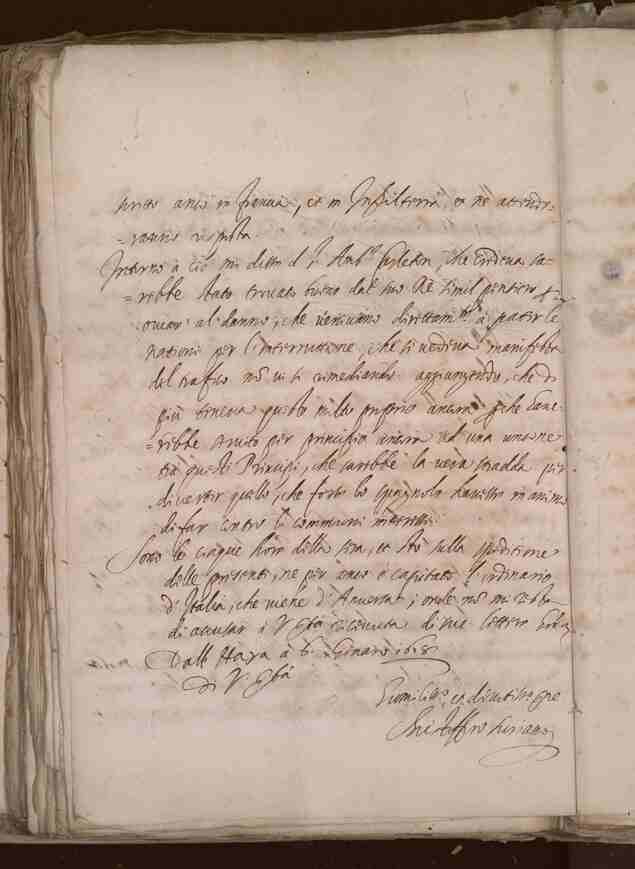 scritto anco in Francia, et in Inghilterra, et ne attende-
=ranno risposta.
Intorno à ciò mi disse il s.r Amb.r Carleton, che credeva sa-
=rebbe stato trovato buono dal suo Rè simil pensiero per
ovviar al danno, che venivano direttam.te à patir le
nationi per l'interruttione, che si vedeva manifesta
del trafico non vi si rimediando. aggiungendo, che di
più teneva questo molto proprio ancora perche have-
=rebbe servito per principio ancora ad una unione
trà questi Principi, che sarebbe la vera stradda per
divertir quello, che forse lo spagnolo havesse in animo
di far contro li communi interessi.
Sono le cinque hore della sera, et stò sulla speditione
delle presenti, ne per anco è capitato l'ordinario
d'Italia, che viene d'Anversa; onde non mi resta
di accusar à V. Ser.tà ricevuta di sue lettere
Dall'Haya à 8. Genaro 1618
Di V. Ser.tà
Humiliss.o et devotiss.o ser.re
Christofforo Suriano